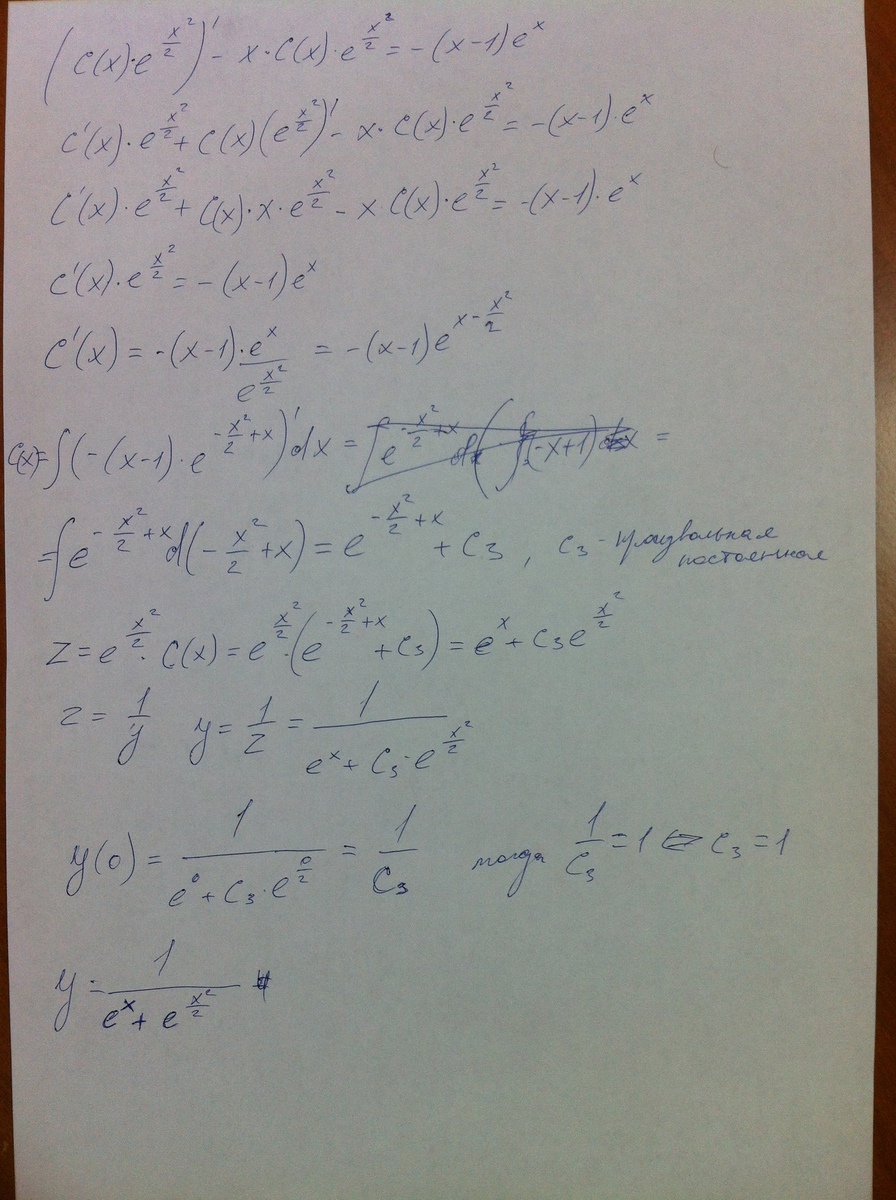 (C(x)·e^{x²/2})' - x·C(x)·e^{x²/2} = -(x-1)e^x
C'(x)·e^{x²/2} + C(x)(e^{x²/2})' - x·C(x)·e^{x²/2} = -(x-1)·e^x
C'(x)·e^{x²/2} + C(x)·x·e^{x²/2} - x C(x)·e^{x²/2} = -(x-1)·e^x
C'(x)·e^{x²/2} = -(x-1)e^x
C'(x) = -(x-1)·e^x/e^{x²/2} = -(x-1)e^{x-x²/2}
C(x)=∫(-(x-1)·e^{-x²/2+x})'dx = =
=∫e^{-x²/2+x}d(-x²/2+x) = e^{-x²/2+x} + C₃, C₃ - произвольная
постоянная
z = e^{x²/2}·C(x) = e^{x²/2}·(e^{-x²/2+x} + C₃) = e^x + C₃e^{x²/2}
z = 1/y y = 1/z = 1/(e^x + C₃·e^{x²/2})
y(0) = 1/(e^0 + C₃·e^{0/2}) = 1/C₃ тогда 1/C₃ = 1 ⇔ C₃ = 1
y = 1/(e^x + e^{x²/2})